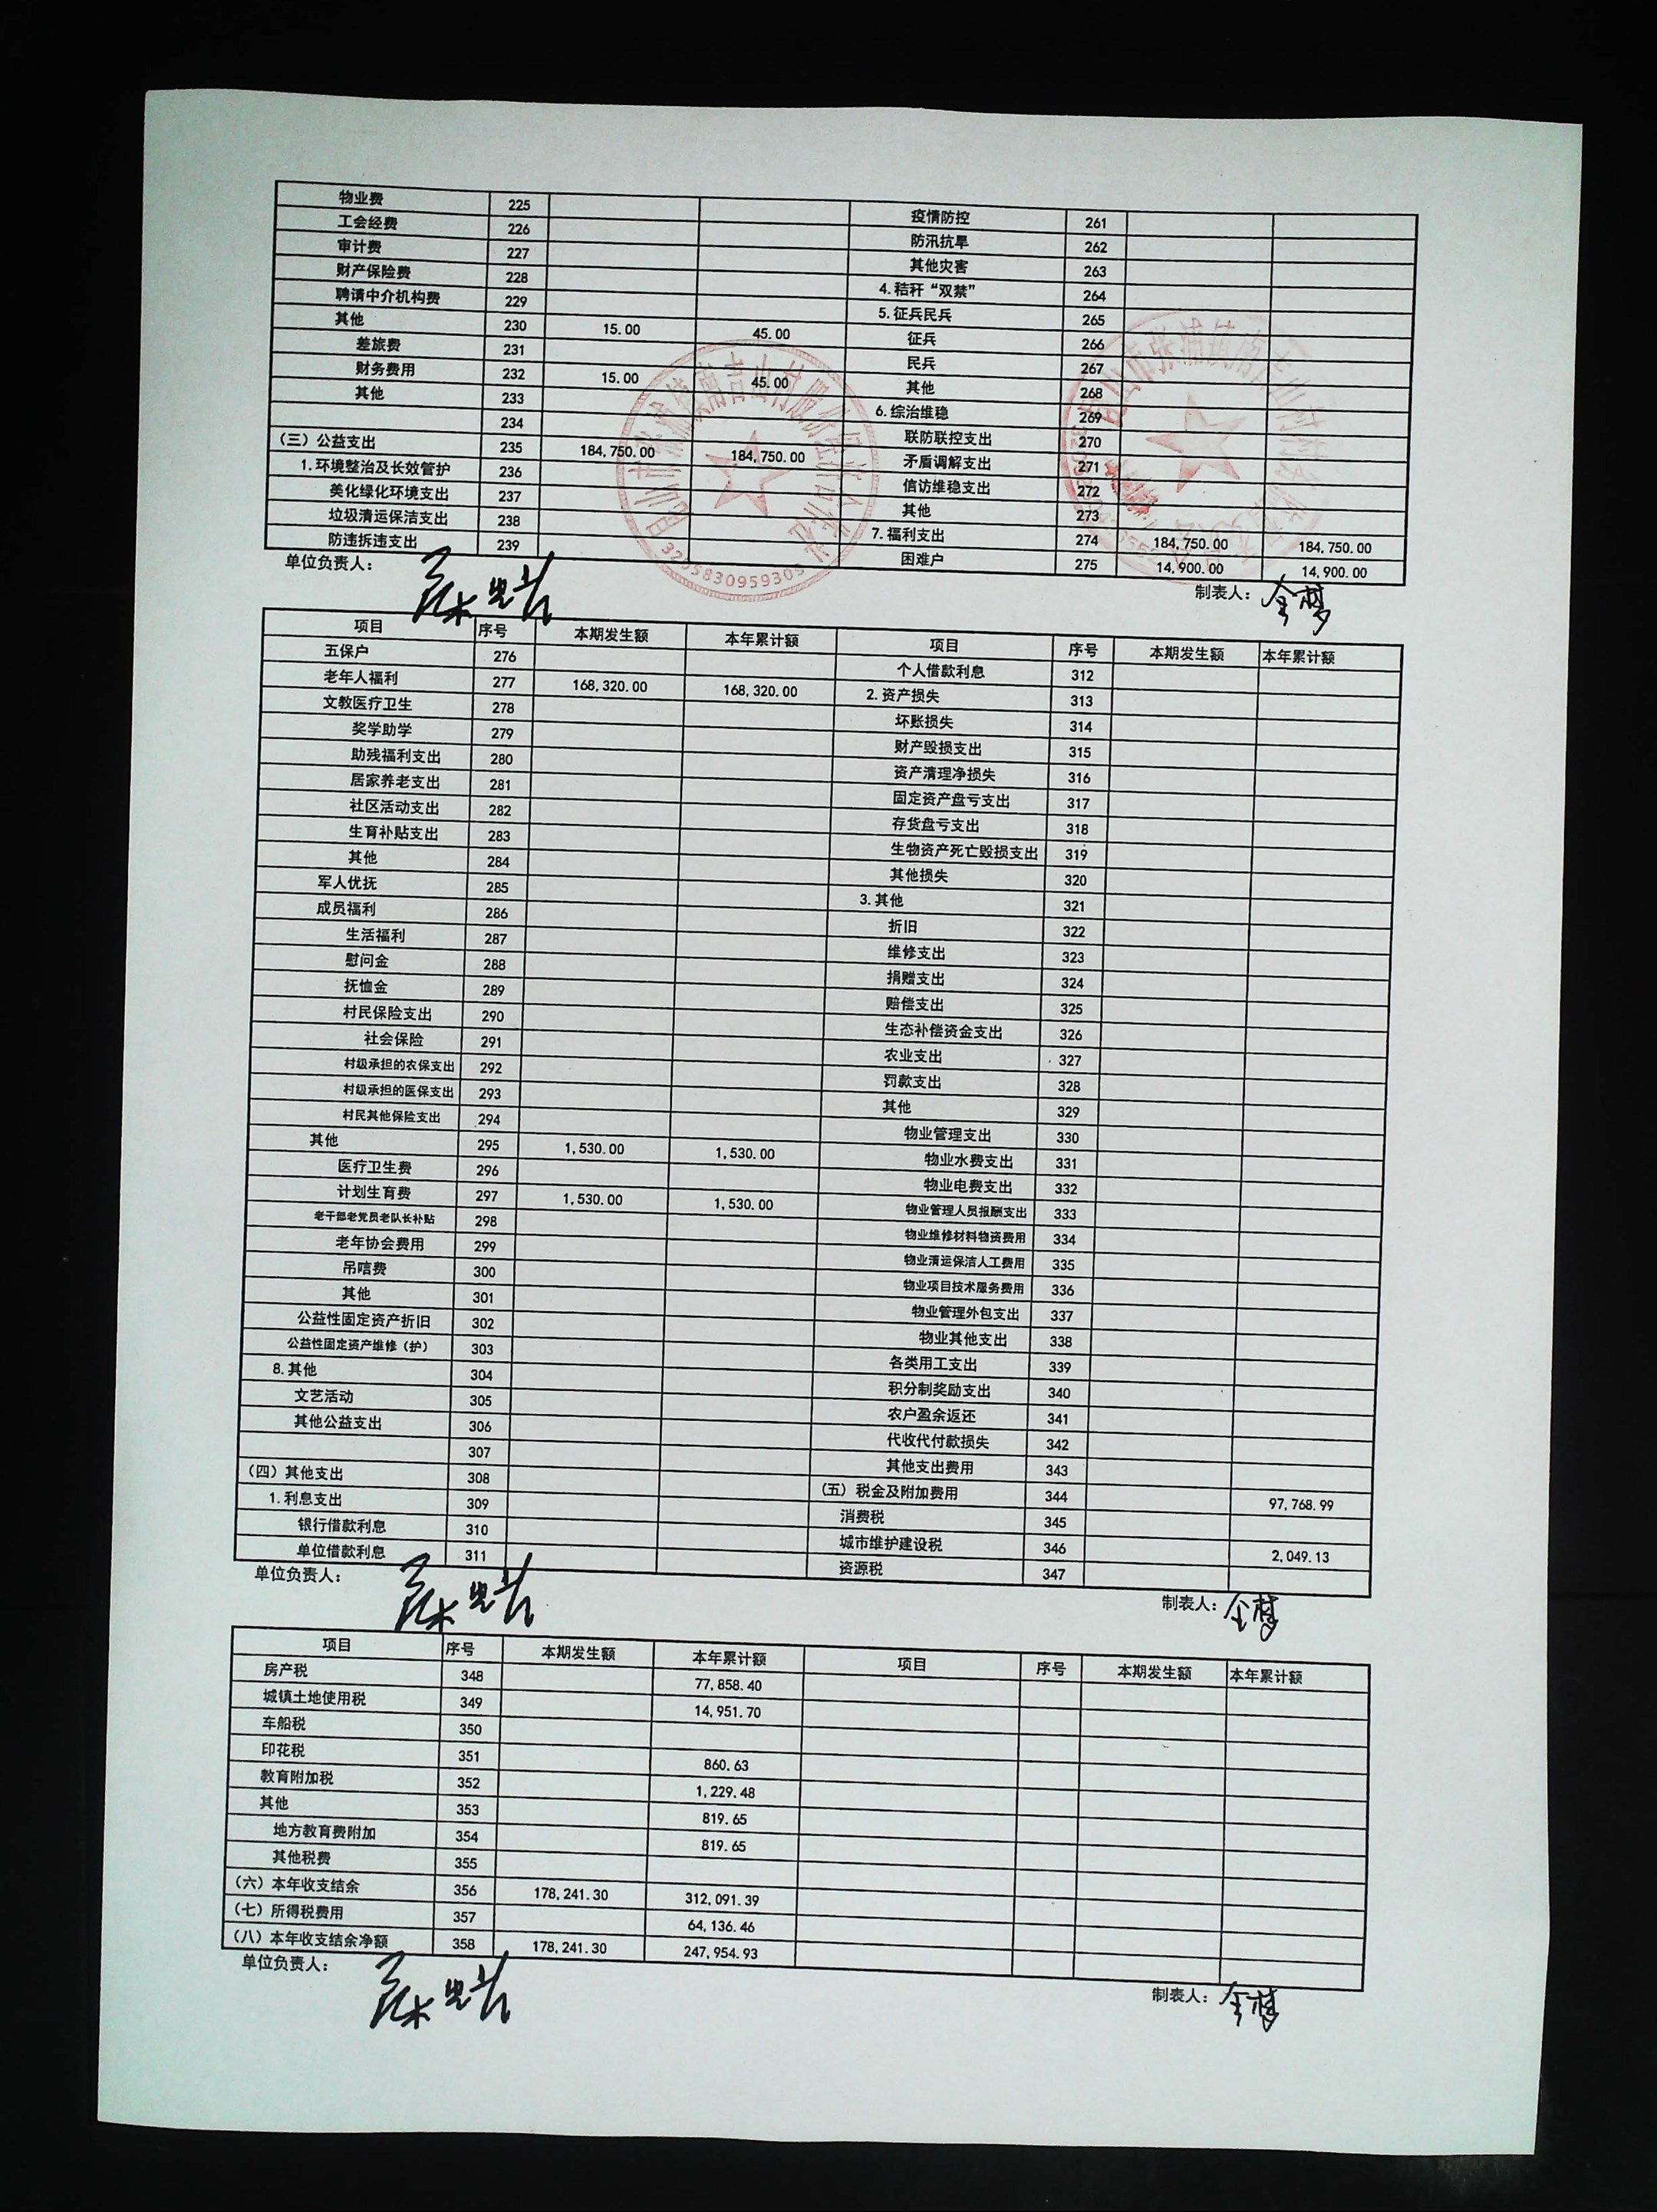 物业费 225 疫情防控 261
工会经费 226 防汛抗旱 262
审计费 227 其他灾害 263
财产保险费 228 4.秸秆“双禁” 264
聘请中介机构费 229 5.征兵民兵 265
其他 230 15.00 45.00 征兵 266
差旅费 231 民兵 267
财务费用 232 15.00 45.00 其他 268
其他 233 6.综治维稳 269
234 联防联控支出 270
(三)公益支出 235 184,750.00 184,750.00 矛盾调解支出 271
1.环境整治及长效管护 236 信访维稳支出 272
美化绿化环境支出 237 其他 273
垃圾清运保洁支出 238 7.福利支出 274 184,750.00 184,750.00
防违拆违支出 239 困难户 275 14,900.00 14,900.00
单位负责人: 制表人:
3205830959309
项目 序号 本期发生额 本年累计额 项目 序号 本期发生额 本年累计额
五保户 276 个人借款利息 312
老年人福利 277 168,320.00 168,320.00 2.资产损失 313
文教医疗卫生 278 坏账损失 314
奖学助学 279 财产毁损支出 315
助残福利支出 280 资产清理净损失 316
居家养老支出 281 固定资产盘亏支出 317
社区活动支出 282 存货盘亏支出 318
生育补贴支出 283 生物资产死亡毁损支出 319
其他 284 其他损失 320
军人优抚 285 3.其他 321
成员福利 286 折旧 322
生活福利 287 维修支出 323
慰问金 288 捐赠支出 324
抚恤金 289 赔偿支出 325
村民保险支出 290 生态补偿资金支出 326
社会保险 291 农业支出 327
村级承担的农保支出 292 罚款支出 328
村级承担的医保支出 293 其他 329
村民其他保险支出 294 物业管理支出 330
其他 295 1,530.00 1,530.00 物业水费支出 331
医疗卫生费 296 物业电费支出 332
计划生育费 297 1,530.00 1,530.00 物业管理人员报酬支出 333
老干部老党员老队长补贴 298 物业维修材料物资费用 334
老年协会费用 299 物业清运保洁人工费用 335
吊唁费 300 物业项目技术服务费用 336
其他 301 物业管理外包支出 337
公益性固定资产折旧 302 物业其他支出 338
公益性固定资产维修(护) 303 各类用工支出 339
8.其他 304 积分制奖励支出 340
文艺活动 305 农户盈余返还 341
其他公益支出 306 代收代付款损失 342
307 其他支出费用 343
(四)其他支出 308 (五)税金及附加费用 344 97,768.99
1.利息支出 309 消费税 345
银行借款利息 310 城市维护建设税 346 2,049.13
单位借款利息 311 资源税 347
单位负责人: 制表人:
项目 序号 本期发生额 本年累计额 项目 序号 本期发生额 本年累计额
房产税 348 77,858.40
城镇土地使用税 349 14,951.70
车船税 350
印花税 351 860.63
教育附加税 352 1,229.48
其他 353 819.65
地方教育费附加 354 819.65
其他税费 355
(六)本年收支结余 356 178,241.30 312,091.39
(七)所得税费用 357 64,136.46
(八)本年收支结余净额 358 178,241.30 247,954.93
单位负责人: 制表人: